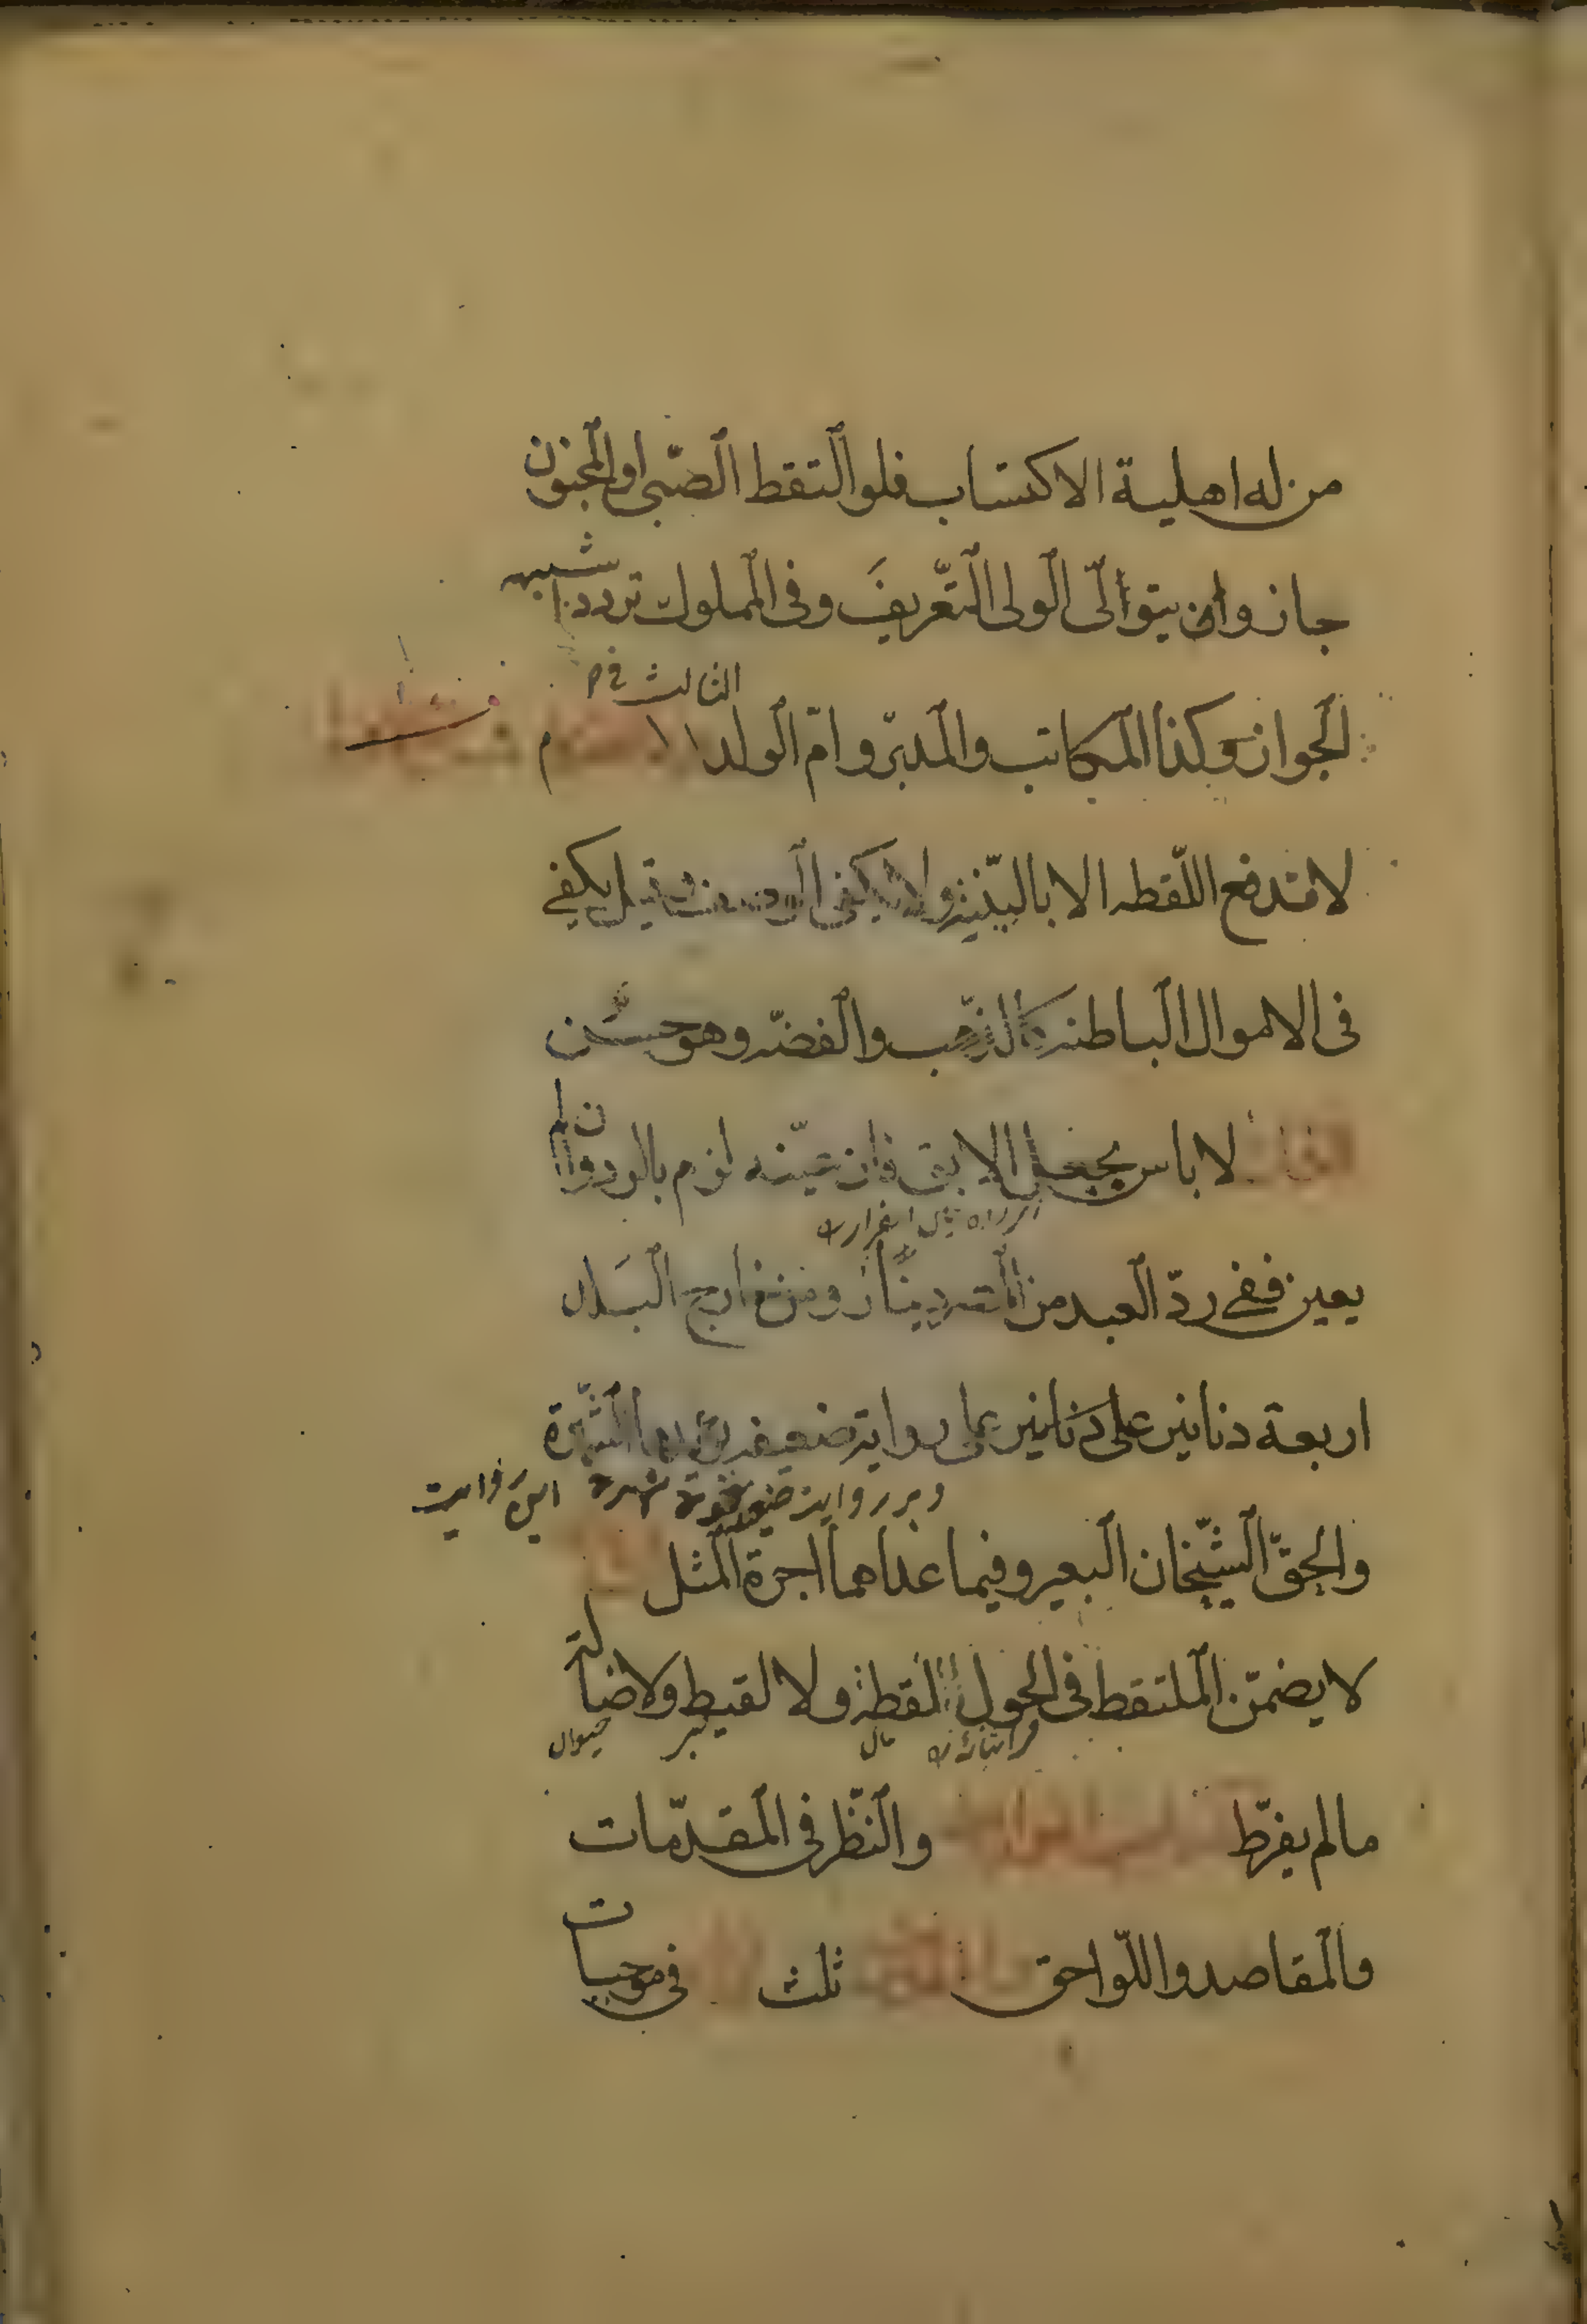 من له اهلية الاكتساب فلو التقط الصّبى او المجنون
جاز وان يتوالى الولى التّعريفَ وفى المملوك تردد اشبهه
الثالث فى
الجواز وكذا المكاتب والمدبّر وامّ الولد
لا تدفع اللّقطه الا بالبيّنة ولا يكفى الوصف وقيل يكفى
فى الاموال الباطنة كالذّهب والفضّه وهو حسن
لا باس بجعل الابق فان عيّنه لزم بالرد وان لم
يعين ففى ردّ العبد من المصر دينار ومن خارج البَلد
اربعة دنانير على دنانير روايه ضعيفه يؤيدها الشّهرة
و بر روايت ضعيف شهرة اين روايت
والحقّ الشّيخان البعير وفيما عداهما اجرة المثل
لا يضمّن الملتقط فى الحول لقطة ولا لقيط ولا ضالة
مال
حيوان
مالم يفرّط والنّظر فى المقدّمات
والمقاصد واللّواحق ثلث فى موجبات